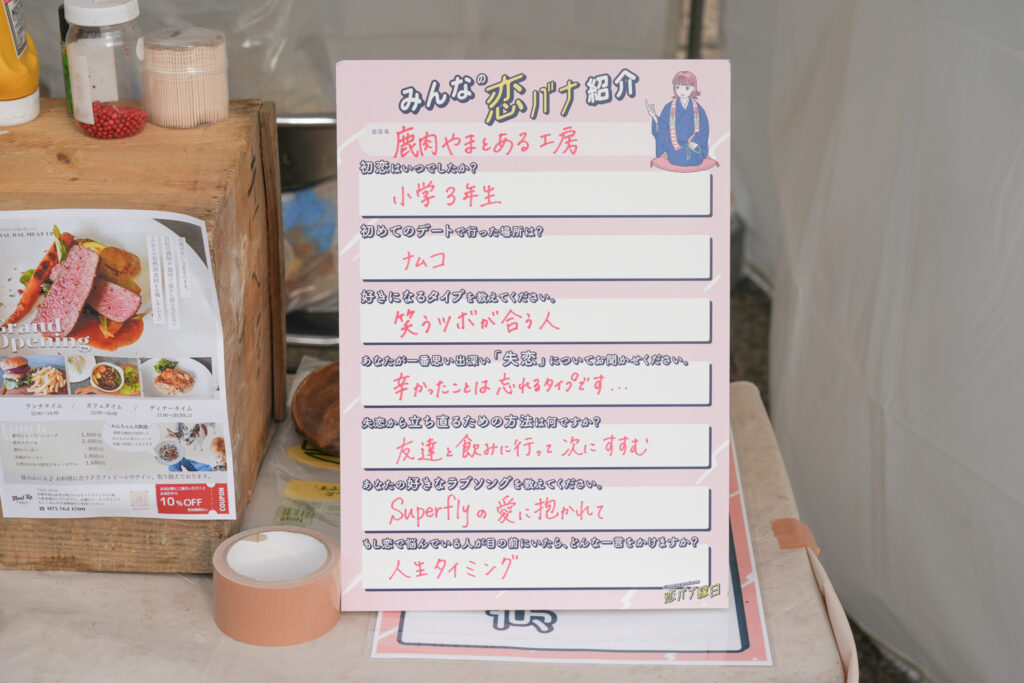 みんなの恋バナ紹介
出店名
鹿肉やまとある工房
初恋はいつでしたか?
小学3年生
初めてのデートで行った場所は?
ナムコ
好きになるタイプを教えてください。
笑うツボが合う人
あなたが一番思い出深い「失恋」についてお聞かせください。
辛かったことは忘れるタイプです...
失恋から立ち直るための方法は何ですか?
友達と飲みに行って次にすすむ
あなたの好きなラブソングを教えてください。
Superflyの愛に抱かれて
もし恋で悩んでいる人が目の前にいたら、どんな一言をかけますか?
人生タイミング
恋バナ縁日
Grand
Opening
ランチタイム / カフェタイム / ディナータイム
Lunch
昼のみにも♪ お料理に合うクラフトビールやワイン、取り揃えております。
Meat Up
075 762 1700
10%OFF
COUPON